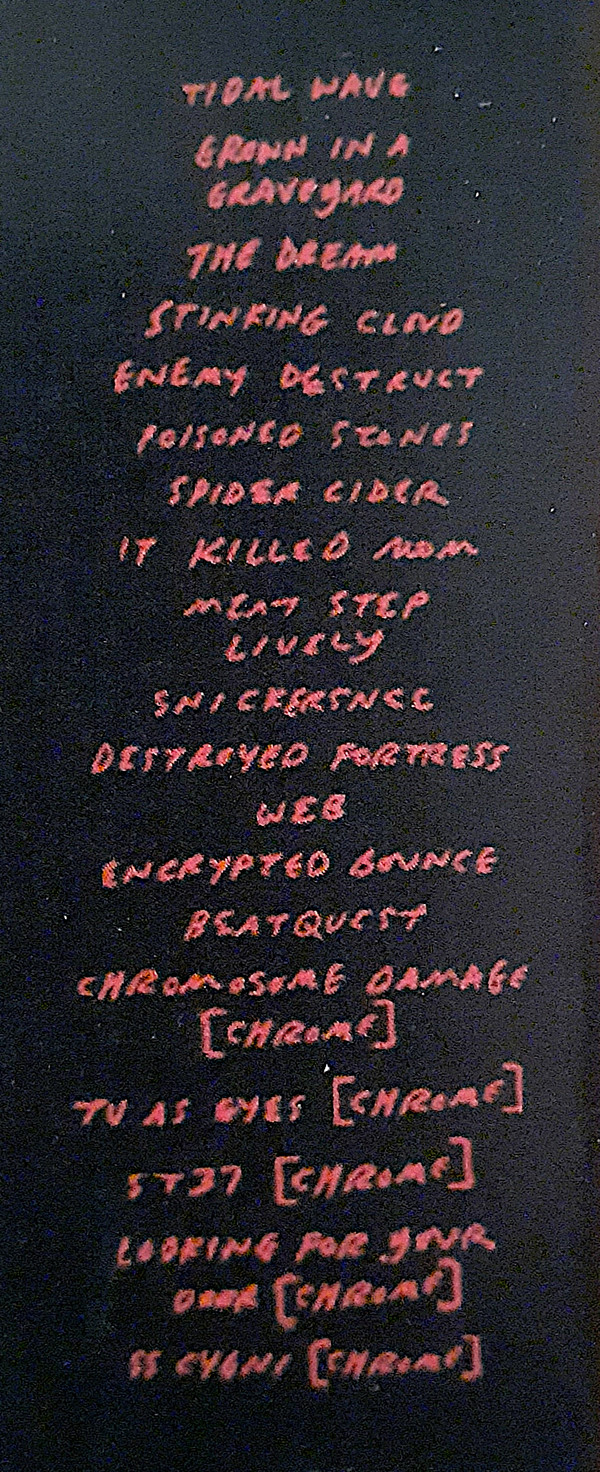 TIDAL WAVE
GROWN IN A
GRAVEYARD
THE DREAM
STINKING CLOUD
ENEMY DESTRUCT
POISONED STONES
SPIDER CIDER
IT KILLED MOM
MEAT STEP
LIVELY
SNICKERSNEE
DESTROYED FORTRESS
WEB
ENCRYPTED BOUNCE
BEATQUEST
CHROMOSOME DAMAGE
[CHROME]
TV AS EYES [CHROME]
ST37 [CHROME]
LOOKING FOR YOUR
DOOR [CHROME]
SS CYGNI [CHROME]